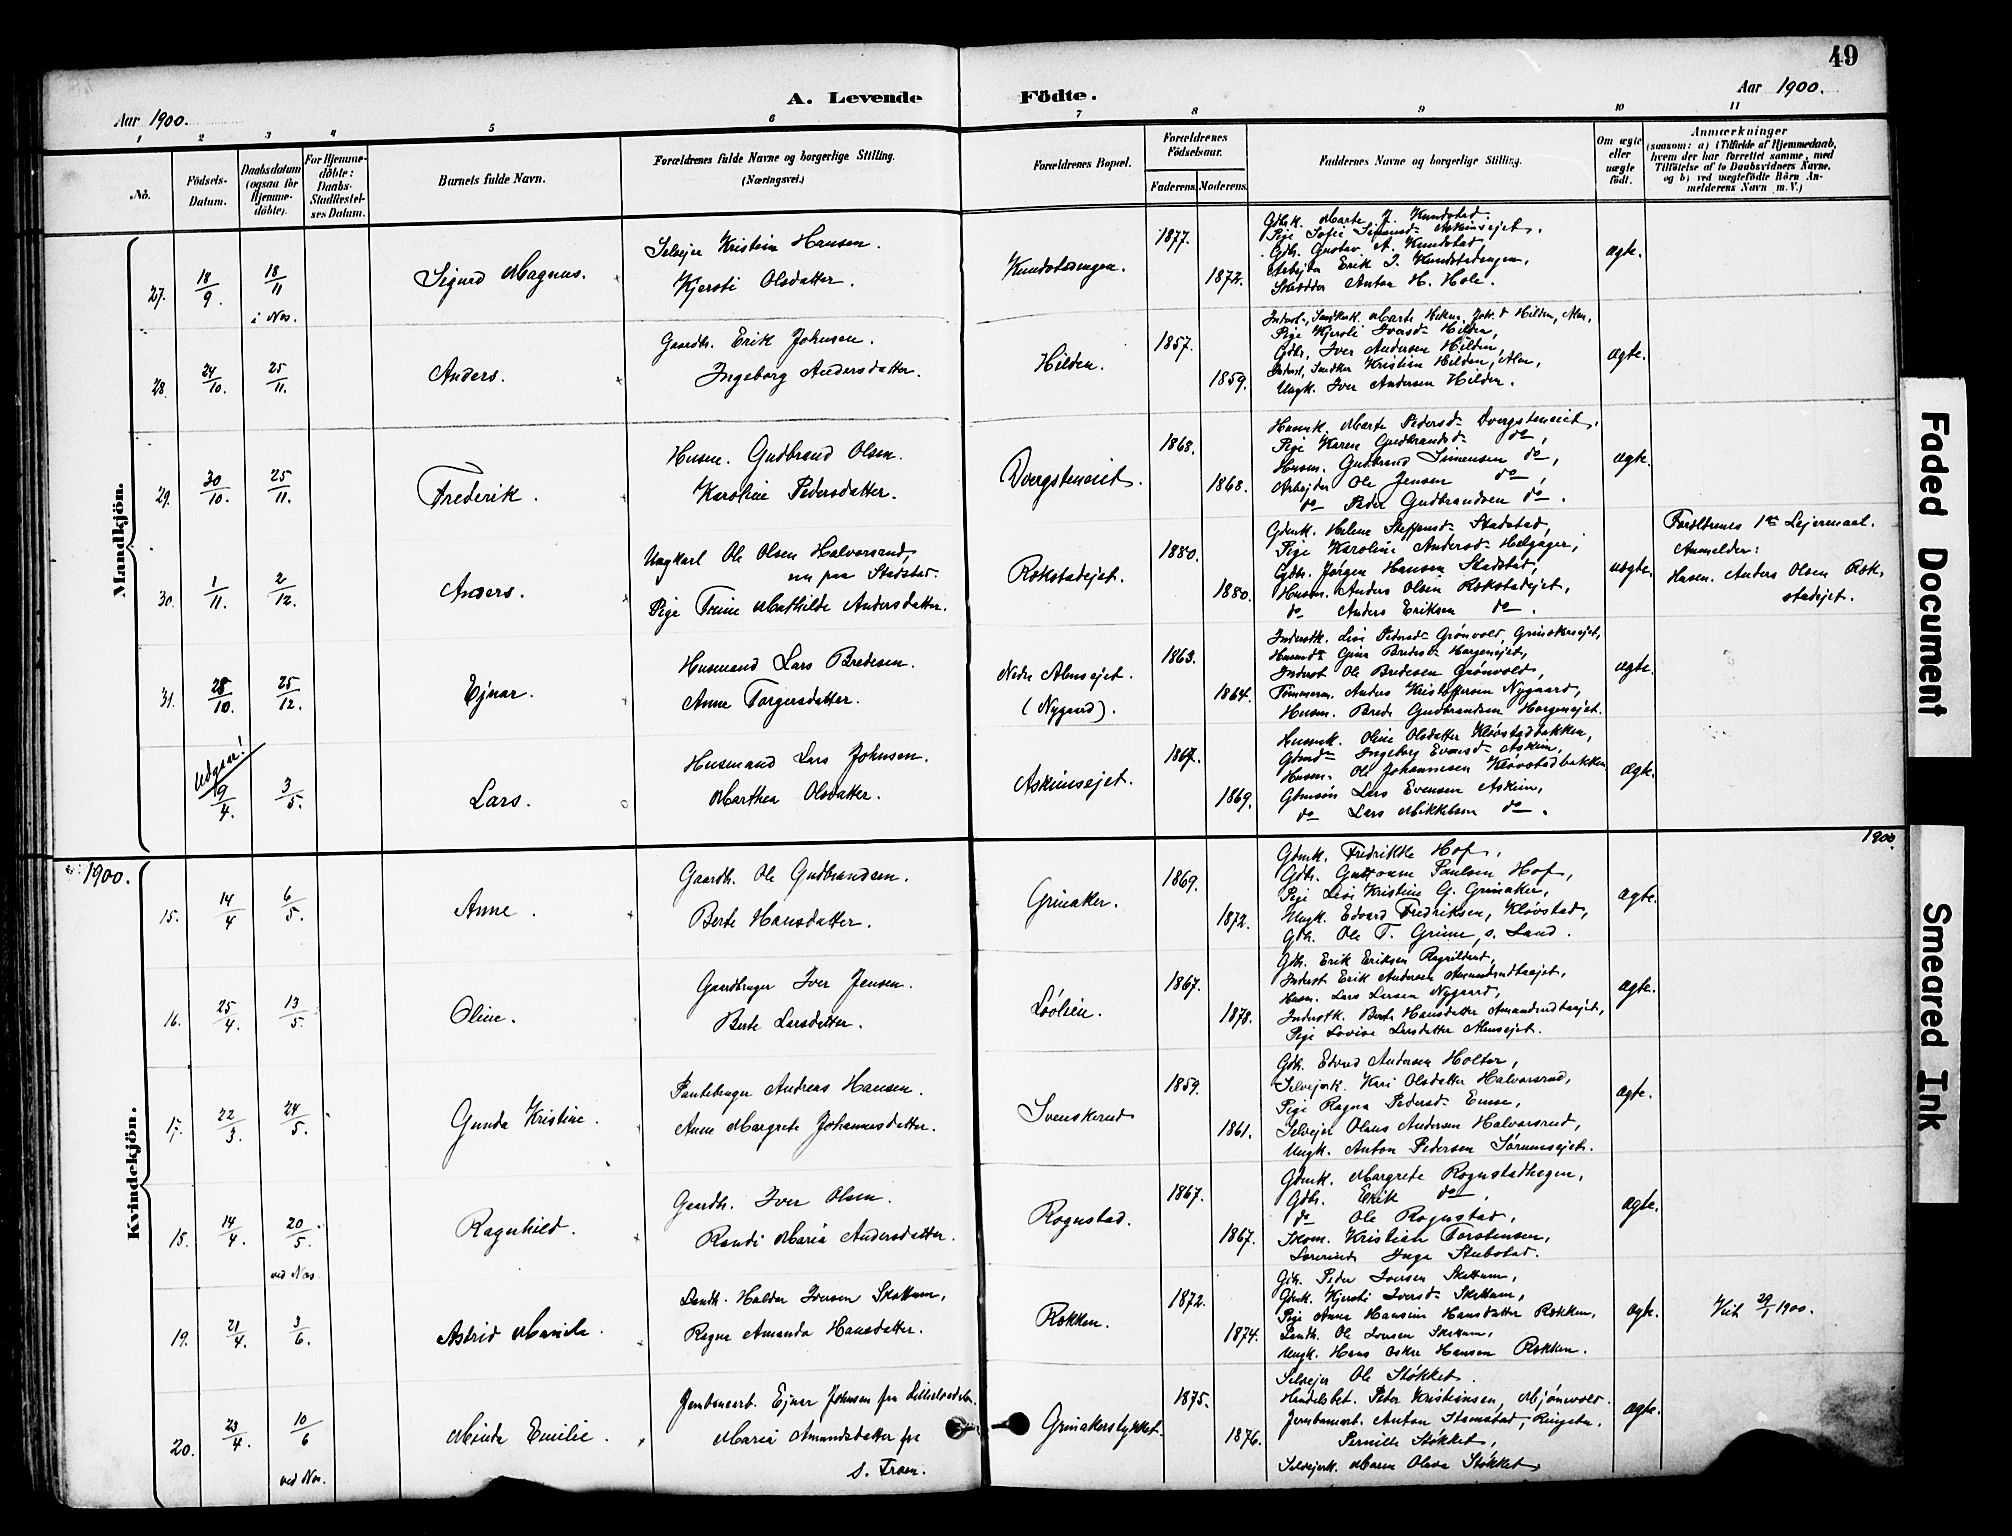 49
Aar 1900.
A. Levende Födte.
Aar 1900.
1 2 3 4 5 6 7 8 9 10 11
No.
Födsels-Datum.
Daabsdatum (ogsaa for Hjemmedöbte).
For Hjemmedöbte: Daabs-Stadfæstelses Datum.
Barnets fulde Navn.
Forældrenes fulde Navne og borgerlige Stilling.
(Næringsvei.)
Forældrenes Bopæl.
Forældrenes Födselsaar.
Faderens. Moderens.
Faddernes Navne og borgerlige Stilling.
Om ægte eller uægte født.
Anmærkninger
(saasom: a) i Tilfælde af Hjemmedaab, hvem der har forrettet samme, med Tilföielse af to Daabsvidners Navne, og b) ved uægtefödte Börn Anmelderens Navn m. V.)
Mandkjön.
27. 18/9. 18/11 i Nes. Sigurd Magnus.
Selvejer Kristian Hansen.
Kjersti Olsdatter.
Kundstadengen. 1877. 1872.
Gdbk. Marte J. Kundstad.
Pige Sofie Simensd. Askimsejet.
Gdb. Gustav A. Kundstad,
Arbejder Erik J. Kundstadengen,
Skrædder Anton H. Hole.
ægte.
28. 24/10. 25/11. Anders.
Gaardb. Erik Johnsen.
Ingeborg Andersdatter.
Hilden. 1857. 1859.
Pige Kjersti Iversd. Hilden,
Gdb. Iver Andersen Hilden,
Ungk. Iver Andersen Hilden.
ægte.
29. 30/10. 25/11. Frederik.
Husm. Gudbrand Olsen.
Karoline Pedersdatter.
Dvergsteneiet. 1868. 1868.
Husmk. Marte Pedersd. Dvergsteneiet,
Pige Karen Gudbrandsd. do,
Husm. Gudbrand Simensen do,
Arbejder Ole Jensen do,
do Peder Gudbrandsen do.
ægte.
30. 1/11. 2/12. Anders.
Ungkarl Ole Olsen Halvorsrud,
nu paa Stadstad.
Pige Trine Mathilde Andersdatter.
Rökstadejet. 1880. 1880.
Gdmk. Helene Steffensd. Stadstad,
Pige Karoline Andersd. Helgager,
Gdb. Jørgen Hansen Stadstad,
Husm. Anders Olsen Rökstadejet,
do Anders Eriksen do.
uægte.
Forældrenes 1ste Lejermaal.
Anmelder:
Husm. Anders Olsen Rökstadejet.
31. 28/10. 25/12. Ejnar.
Husmand Lars Bredesen.
Anne Torgersdatter.
Nedre Almsejet.
(Nygaard).
1863. 1864.
Inderstk. Lise Pedersd. Grønvold, Grinakersejet,
Husmd. Gina Bredesd. Horgensejet,
Inderst Ole Bredesen Grønvold,
Tømmerm. Anders Kristoffersen Nygaard,
Husm. Brede Gudbrandsen Horgensejet.
ægte.
Udgaar!
9/4. 3/5. Lars.
Husmand Lars Johnsen.
Marthea Olsdatter.
Askimsejet. 1867. 1869.
Husmk. Oline Olsdatter Kløvstadbakken,
Gbmd. Ingeborg Evensd. Askim,
Husm. Ole Johannesen Kløvstadbakken
Gbmsön Lars Evensen Askim,
do Lars Mikkelsen do.
ægte.
1900. 1900.
Kvindekjön.
15. 14/4 6/5. Anne.
Gaardb. Ole Gudbrandsen.
Berte Hansdatter.
Grinaker. 1869. 1872.
Gdmk. Fredrikke Hof,
Gdb. Guttorm Paulsen Hof,
Pige Lise Kristine G. Grinaker,
Ungk. Edvard Fredriksen, Kløvstad,
Gdb. Ole T. Grime, s. Land.
ægte.
16. 25/4. 13/5. Oline.
Gaardbruger Iver Jensen.
Berte Larsdatter.
Lölien. 1867. 1878.
Gdb. Erik Eriksen Ragnildrud,
Inderst Erik Andersen Amundrudhaejet,
Husm. Lars Larsen Nygaard,
Inderstk. Berte Hansdatter
Pige Lovise Larsdatter Almsejet.
ægte.
17. 22/3. 24/5. Gunda Kristine.
Pantebruger Andreas Hansen.
Anne Margrete Johannesdatter.
Svenskerud 1859. 1861.
Gdb. Edvard Andersen Holter,
Selvejerk. Kari Olsdatter Halvorsrud,
Pige Ragna Pedersd.
Selvejer Olaus Andersen Halvorsrud,
Ungk. Anton Pedersen Sörumsejet.
ægte.
18. 14/4. 20/5. ved Nes. Ragnhild.
Gaardb. Iver Olsen.
Randi Maria Andersdatter.
Rognstad. 1867. 1867.
Gdmk. Margrete Rognstadhagen,
Gdb. Erik do,
do Ole Rognstad,
Skom. Kristian Torstensen,
Lærerinde Inga Stubstad.
ægte.
19. 21/4. 3/6. Astrid Marie.
Landh. Halder Iversen Skattum,
Ragna Amanda Hansdatter.
Røkken. 1872. 1874.
Gdb. Peder Iversen Skattum,
Gdmk. Kjersti Iversd. Skattum,
Pige Anna Hansine Hansdatter Røkken,
Landh. Ole Iversen Skattum,
Ungk. Hans Oskar Hansen Røkken.
ægte.
1900.
20. 23/4. 10/6 ved Nes. Minda Emilie.
Jernbanearb. Ejnar Johnsen fra
Maria Amundsdatter fra
S. Fron.
Grinakerslykket. 1875. 1876.
Selvejer Ole Støkket.
Handelsbet. Peter Kristiansen, Mjønvold.
Jernbanearb. Anton Stamstad, Ringebu,
Pernille Støkket,
Selvejerk. Maren Olava Støkket,
ægte.
Faded Document
Smeared Ink